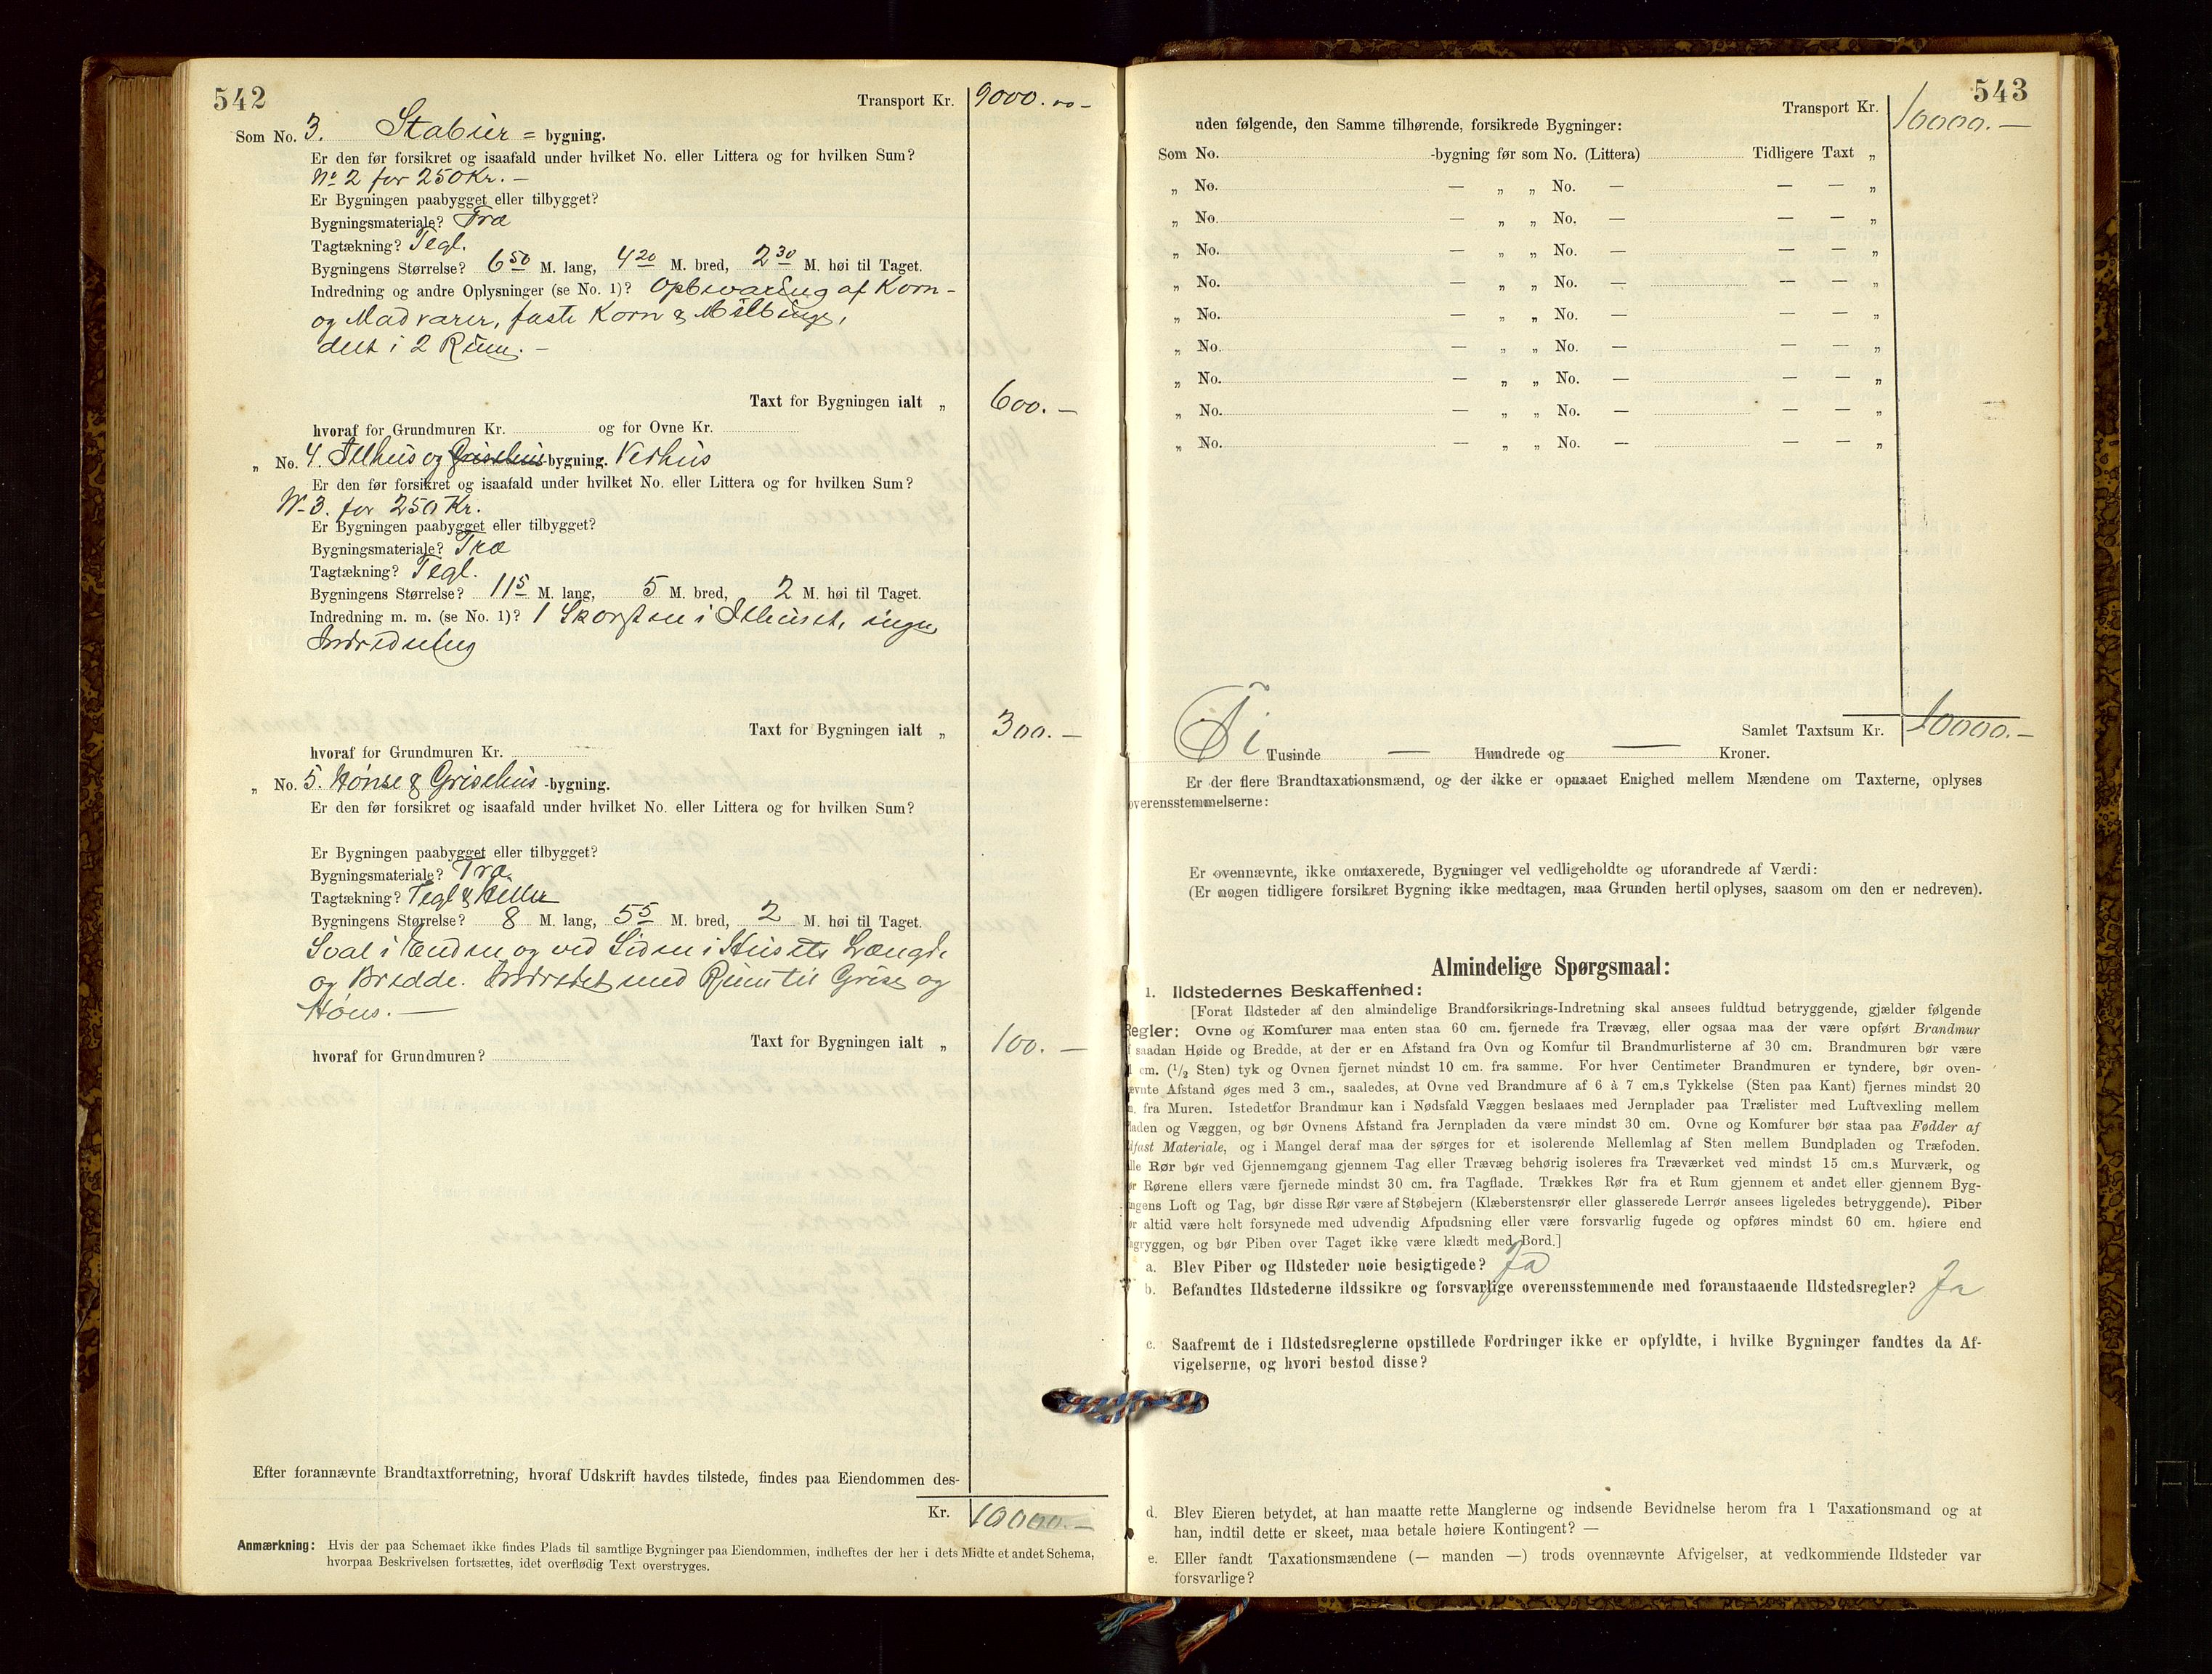 542
Transport Kr. 9000. 00 –
Som No. 3. Stabur = bygning.
Er den før forsikret og isaafald under hvilket No. eller Littera og for hvilken Sum?
No 2 for 250 Kr. –
Er Bygningen paabygget eller tilbygget?
Bygningsmateriale? Træ
Tagtækning? Tegl.
Bygningens Størrelse? 6 50 M. lang, 4 20 M. bred, 2 30 M. høi til Taget.
Indredning og andre Oplysninger (se No. 1)? Opbevaring af Korn-
og Madvarer, faste Korn &
delt i 2 Rum. –
Taxt for Bygningen ialt „ 600. –
hvoraf for Grundmuren Kr. og for Ovne Kr.
„ No. 4. Ildhus og Grisehus-bygning. Vedhus
Er den før forsikret og isaafald under hvilket No. eller Littera og for hvilken Sum?
No 3. for 250 Kr.
Er Bygningen paabygget eller tilbygget?
Bygningsmateriale? Træ
Tagtækning? Tegl.
Bygningens Størrelse? 11 5 M. lang, 5 M. bred, 2 M. høi til Taget.
Indredning m. m. (se No. 1)? 1 Skorsten i Ildhuset, ingen
Indredning
Taxt for Bygningen ialt „ 300. –
hvoraf for Grundmuren Kr.
„ No. 5. Hønse & Grisehus -bygning.
Er den før forsikret og isaafald under hvilket No. eller Littera og for hvilken Sum?
Er Bygningen paabygget eller tilbygget?
Bygningsmateriale? Træ.
Tagtækning? Tegl & Heller
Bygningens Størrelse? 8 M. lang, 5 5 M. bred, 2 M. høi til Taget.
Sval i Enden og ved Siden i Husets Længde
og Bredde. Indredet med Rum til Grise og
Høns. –
Taxt for Bygningen ialt „ 100. –
hvoraf for Grundmuren?
Efter forannævnte Brandtaxtforretning, hvoraf Udskrift havdes tilstede, findes paa Eiendommen des-
Kr. 10000. –
Anmærkning: Hvis der paa Schemaet ikke findes Plads til samtlige Bygninger paa Eiendommen, indheftes der her i dets Midte et andet Schema,
hvorpaa Beskrivelsen fortsættes, idet overflødig Text overstryges.
543
Transport Kr. 10000. –
uden følgende, den Samme tilhørende, forsikrede Bygninger:
Som No. -bygning før som No. (Littera) Tidligere Taxt „
„ No. — „ „ No. — — — „
„ No. — „ „ No. — — — „
„ No. — „ „ No. — — — „
„ No. — „ „ No. — — — „
„ No. — „ „ No. — — — „
„ No. — „ „ No. — — — „
„ No. — „ „ No. — — — „
„ No. — „ „ No. — — — „
„ No. — „ „ No. — — — „
Samlet Taxtsum Kr. 10000. –
Ti Tusinde — Hundrede og — Kroner.
Er der flere Brandtaxationsmænd, og der ikke er opnaaet Enighed mellem Mændene om Taxterne, oplyses
overensstemmelserne:
Er ovennævnte, ikke omtaxerede, Bygninger vel vedligeholdte og uforandrede af Værdi:
(Er nogen tidligere forsikret Bygning ikke medtagen, maa Grunden hertil oplyses, saasom om den er nedreven).
Almindelige Spørgsmaal:
1. Ildstedernes Beskaffenhed:
[Forat Ildsteder af den almindelige Brandforsikrings-Indretning skal ansees fuldtud betryggende, gjælder følgende
Regler: Ovne og Komfurer maa enten staa 60 cm. fjernede fra Trævæg, eller ogsaa maa der være opført Brandmur
f saadan Høide og Bredde, at der er en Afstand fra Ovn og Komfur til Brandmurlisterne af 30 cm. Brandmuren bør være
cm. (1/2 Sten) tyk og Ovnen fjernet mindst 10 cm. fra samme. For hver Centimeter Brandmuren er tyndere, bør oven-
ævnte Afstand øges med 3 cm., saaledes, at Ovne ved Brandmure af 6 à 7 cm.s Tykkelse (Sten paa Kant) fjernes mindst 20
. fra Muren. Istedetfor Brandmur kan i Nødsfald Væggen beslaaes med Jernplader paa Trælister med Luftvexling mellem
laden og Væggen, og bør Ovnens Afstand fra Jernpladen da være mindst 30 cm. Ovne og Komfurer bør staa paa Fødder af
dfast Materiale, og i Mangel deraf maa der sørges for et isolerende Mellemlag af Sten mellem Bundpladen og Træfoden.
lle Rør bør ved Gjennemgang gjennem Tag eller Trævæg behørig isoleres fra Træværket ved mindst 15 cm.s Murværk, og
ør Rørene ellers være fjernede mindst 30 cm. fra Tagflade. Trækkes Rør fra et Rum gjennem et andet eller gjennem Byg-
ingens Loft og Tag, bør disse Rør være af Støbejern (Klæberstensrør eller glasserede Lerrør ansees ligeledes betryggende). Piber
ør altid være helt forsynede med udvendig Afpudsning eller være forsvarlig fugede og opføres mindst 60 cm. høiere end
agryggen, og bør Piben over Taget ikke være klædt med Bord.]
a. Blev Piber og Ildsteder nøie besigtigede? Ja
b. Befandtes Ildstederne ildssikre og forsvarlige overensstemmende med foranstaaende Ildstedsregler? Ja
c. Saafremt de i Ildstedsreglerne opstillede Fordringer ikke er opfyldte, i hvilke Bygninger fandtes da Af-
vigelserne, og hvori bestod disse?
d. Blev Eieren betydet, at han maatte rette Manglerne og indsende Bevidnelse herom fra 1 Taxationsmand og at
han, indtil dette er skeet, maa betale høiere Kontingent? —
e. Eller fandt Taxationsmændene (— manden —) trods ovennævnte Afvigelser, at vedkommende Ildsteder var
forsvarlige?